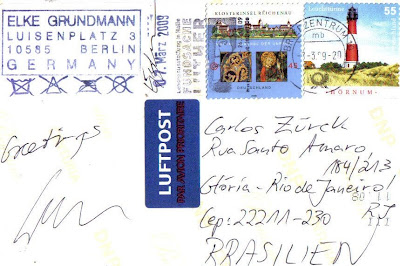 ELKE GRUNDMANN
LUISENPLATZ 3
10585 BERLIN
GERMANY
März 2009
KLOSTERINSEL REICHENAU
DEUTSCHLAND
ZENTRUM
mb
Leuchttürme
55
HÖRNUM
LUFTPOST
PAR AVION PRIORITAIRE
Greetings
Carlos Zürck
Rua Santo Amaro
184/213
Glória - Rio de Janeiro/
RJ
Cep: 22211-230
BRASILIEN